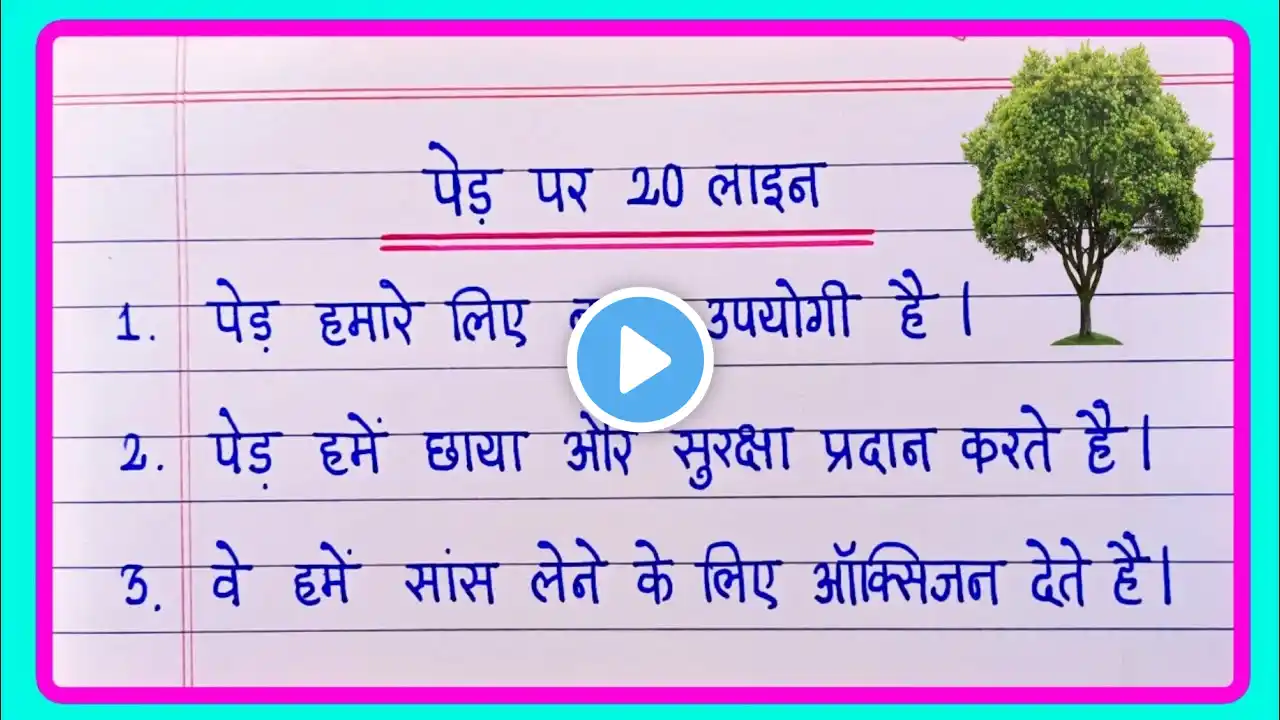 पेड़ पर 20 लाइन
1. पेड़ हमारे लिए उपयोगी है।
2. पेड़ हमें छाया और सुरक्षा प्रदान करते है।
3. वे हमें सांस लेने के लिए ऑक्सिजन देते है।